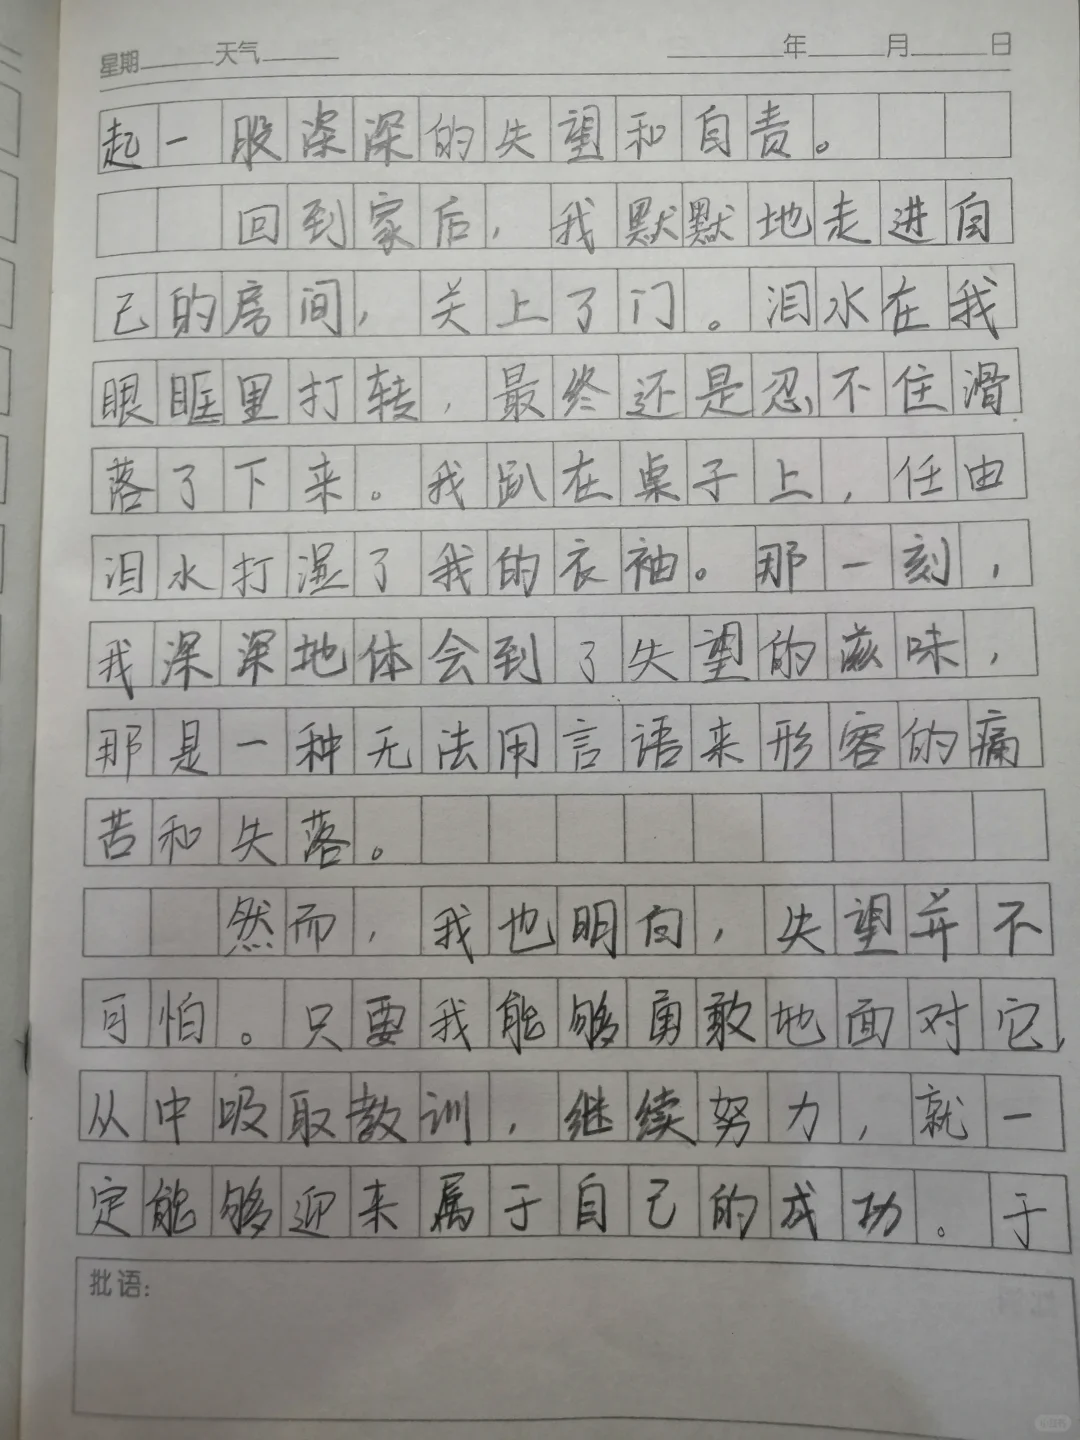 星期 天气 年 月 日
起一股深深的失望和自责。
回到家后，我默默地走进自
己的房间，关上了门。泪水在我
眼眶里打转，最终还是忍不住滑
落了下来。我趴在桌子上，任由
泪水打湿了我的衣袖。那一刻，
我深深地体会到了失望的滋味，
那是一种无法用言语来形容的痛
苦和失落。
然而，我也明白，失望并不
可怕。只要我能够勇敢地面对它，
从中吸取教训，继续努力，就一
定能够迎来属于自己的成功。于
批语：